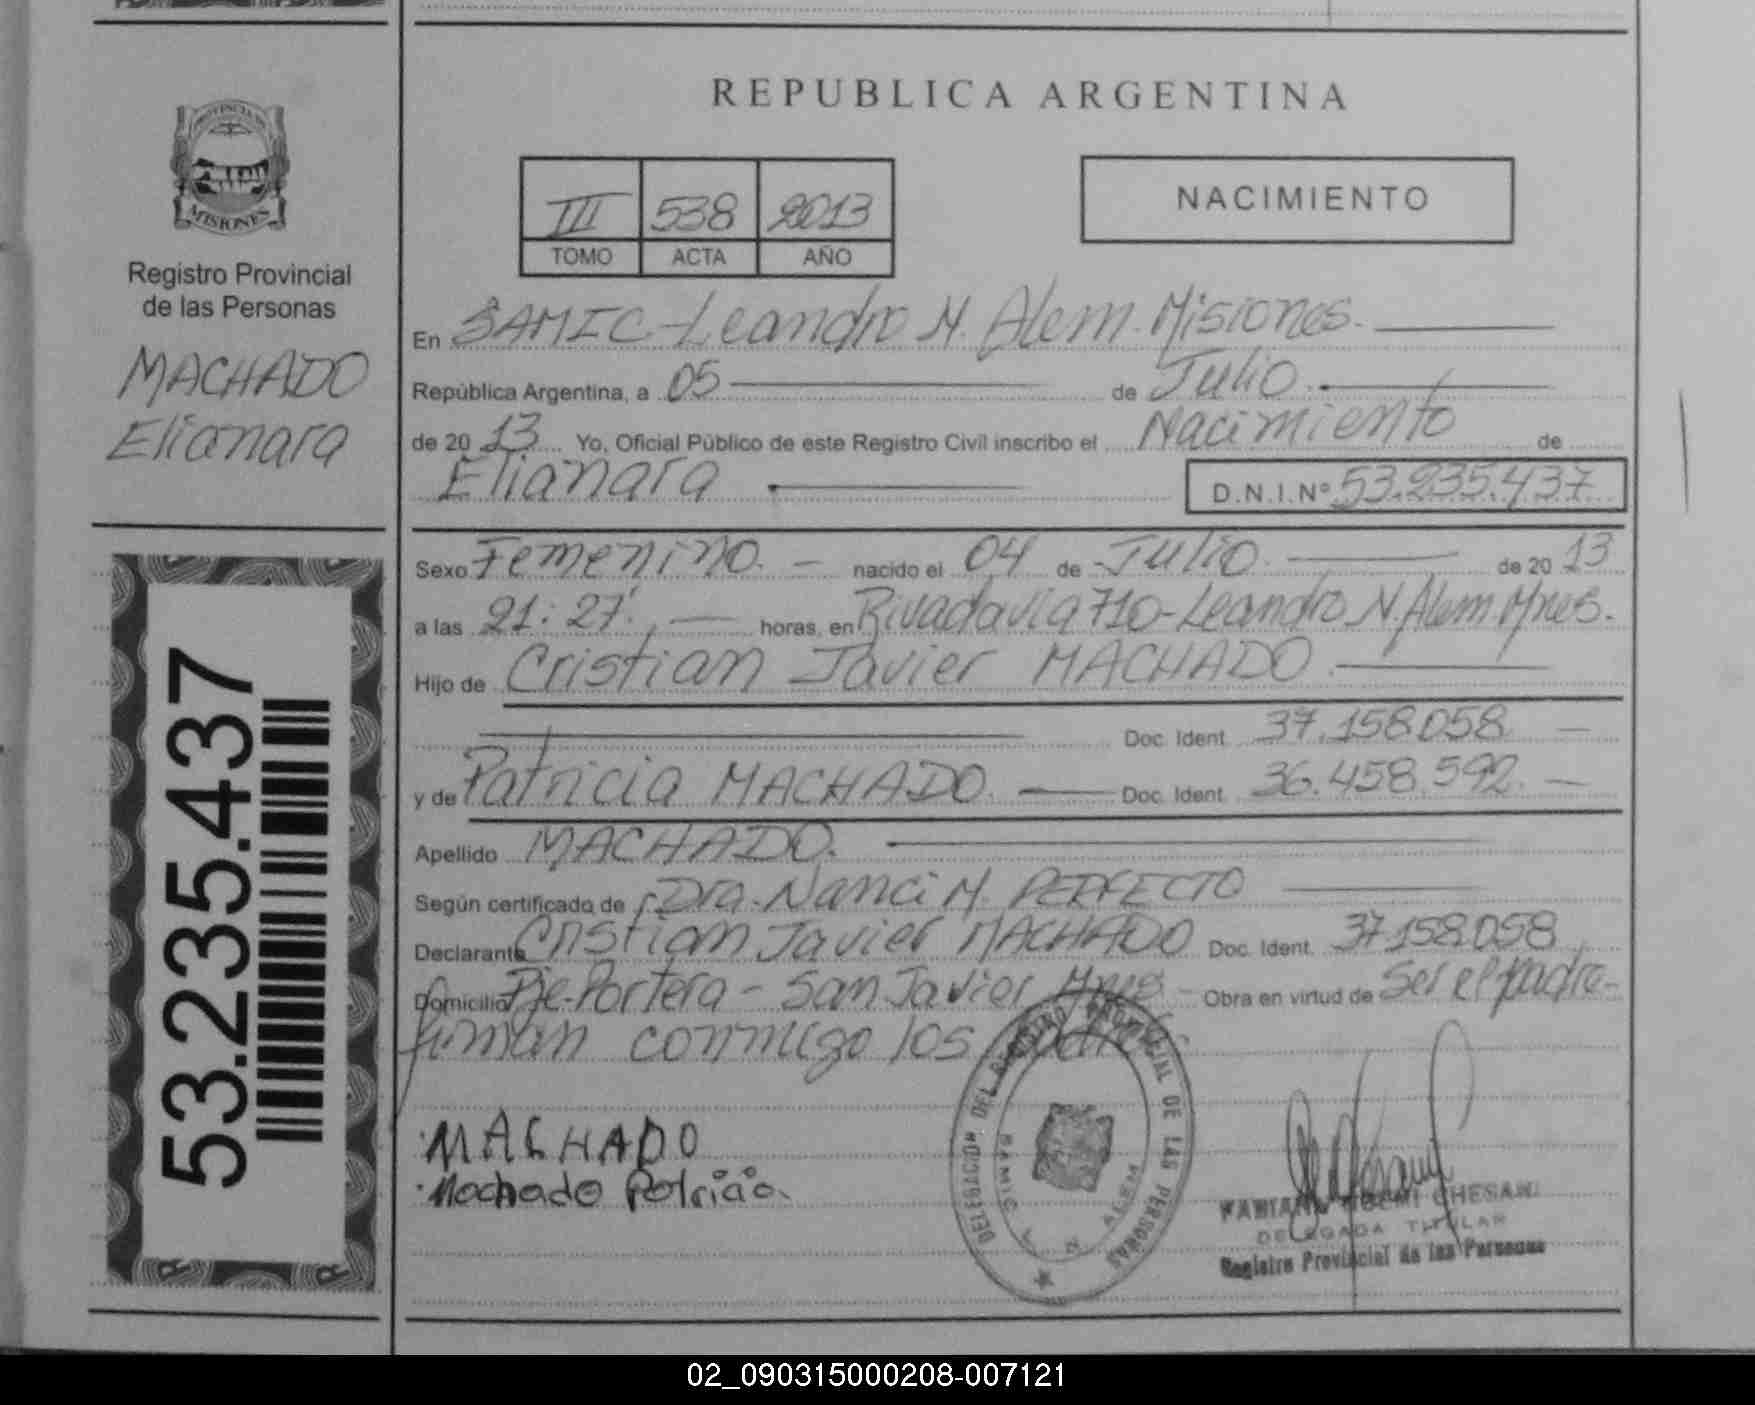 REPUBLICA ARGENTINA
PROVINCIA DE
MISIONES
Registro Provincial
de las Personas
MACHADO
Elianara
53.235.437
R R
III 538 2013
TOMO ACTA AÑO
NACIMIENTO
En SAMIC-Leandro N. Alem. Misiones.
República Argentina, a 05 de Julio.
de 20 13 Yo, Oficial Público de este Registro Civil inscribo el Nacimiento de
Elianara D.N.I.Nº 53.235.437
Sexo Femenino. nacido el 04 de Julio. de 20 13
a las 21:27'. horas, en Rivadavia 710-Leandro N. Alem. Mnes.
Hijo de Cristian Javier MACHADO.
Doc. Ident. 37.158.058
y de Patricia MACHADO. Doc. Ident. 36.458.592.
Apellido MACHADO.
Según certificado de Dra. Nanci M. PERFECTO
Declarante Cristian Javier MACHADO Doc. Ident. 37.158.058
Domicilio Pje. Portera - San Javier Mnes - Obra en virtud de Ser el padre-
firman conmigo los padres
MACHADO
Machado Patricia
DELEGACION DEL REGISTRO PROVINCIAL DE LAS PERSONAS
SAMIC L. N. ALEM
NOEMI CHESANI
DELEGADA TITULAR
Registro Provincial de las Personas
02_090315000208-007121